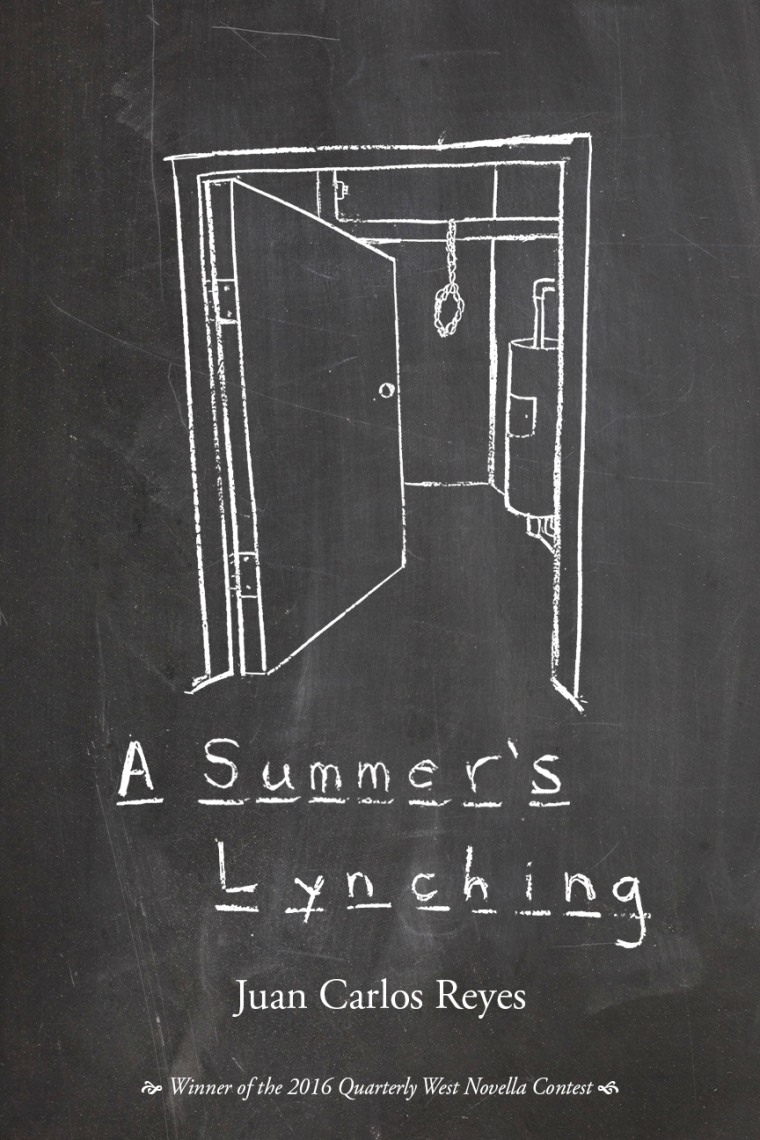 A Summer's
Lynching
Juan Carlos Reyes
Winner of the 2016 Quarterly West Novella Contest